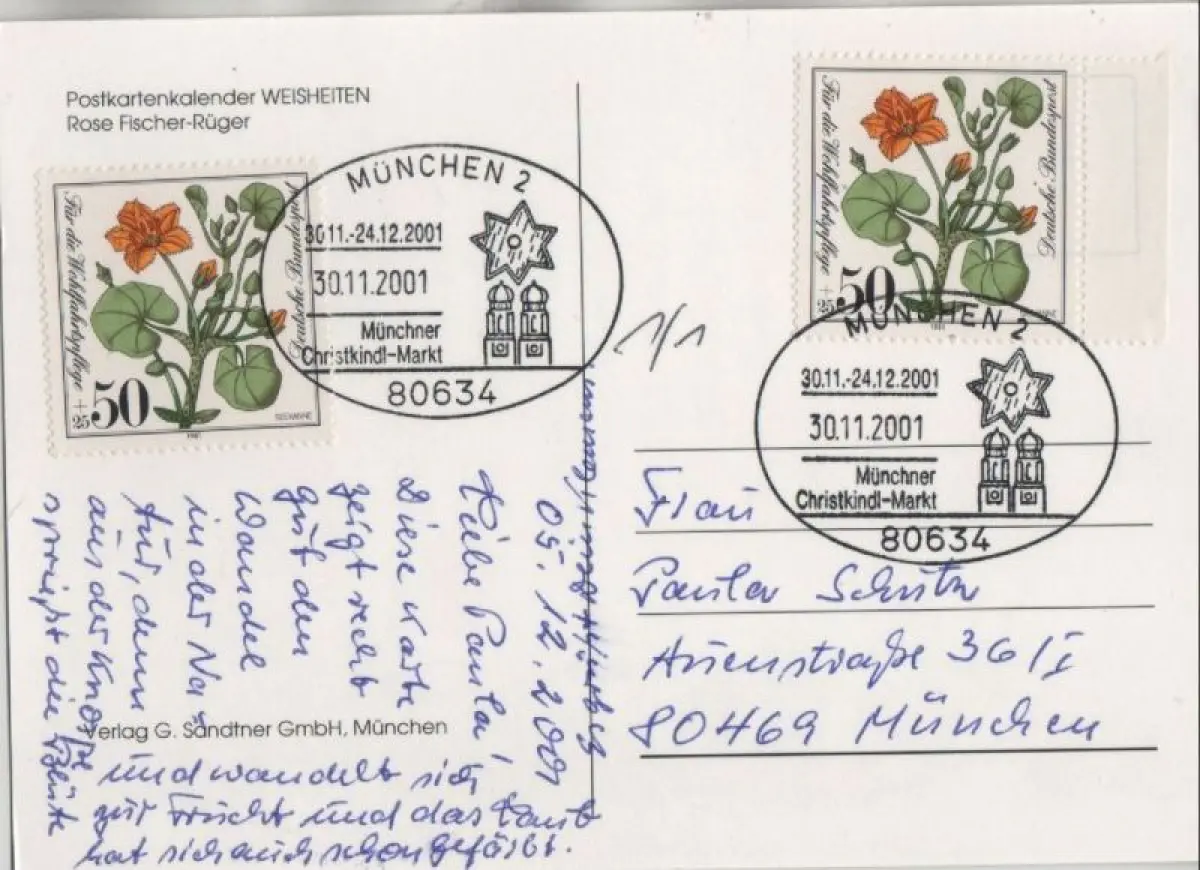 Postkartenkalender WEISHEITEN
Rose Fischer-Rüger
Für die Wohlfahrtspflege
Deutsche Bundespost
+25 50
SEEKANNE
1981
MÜNCHEN 2
30.11.-24.12.2001
30.11.2001
Münchner
Christkindl-Markt
80634
05.12.2001
Liebe Paula!
Diese Karte
zeigt recht
gut den
Wandel
in der Na-
tur, denn
aus der Knospe
spriept die Blüte
und wandelt sich
zur Frucht und das Laub
hat sich auch schon gefärbt.
Verlag G. Sandtner GmbH, München
1/1
Für die Wohlfahrtspflege
Deutsche Bundespost
+25 50
1981
MÜNCHEN 2
30.11.-24.12.2001
30.11.2001
Münchner
Christkindl-Markt
80634
Frau
Paula Schütz
Auenstraße 36/I
80469 München